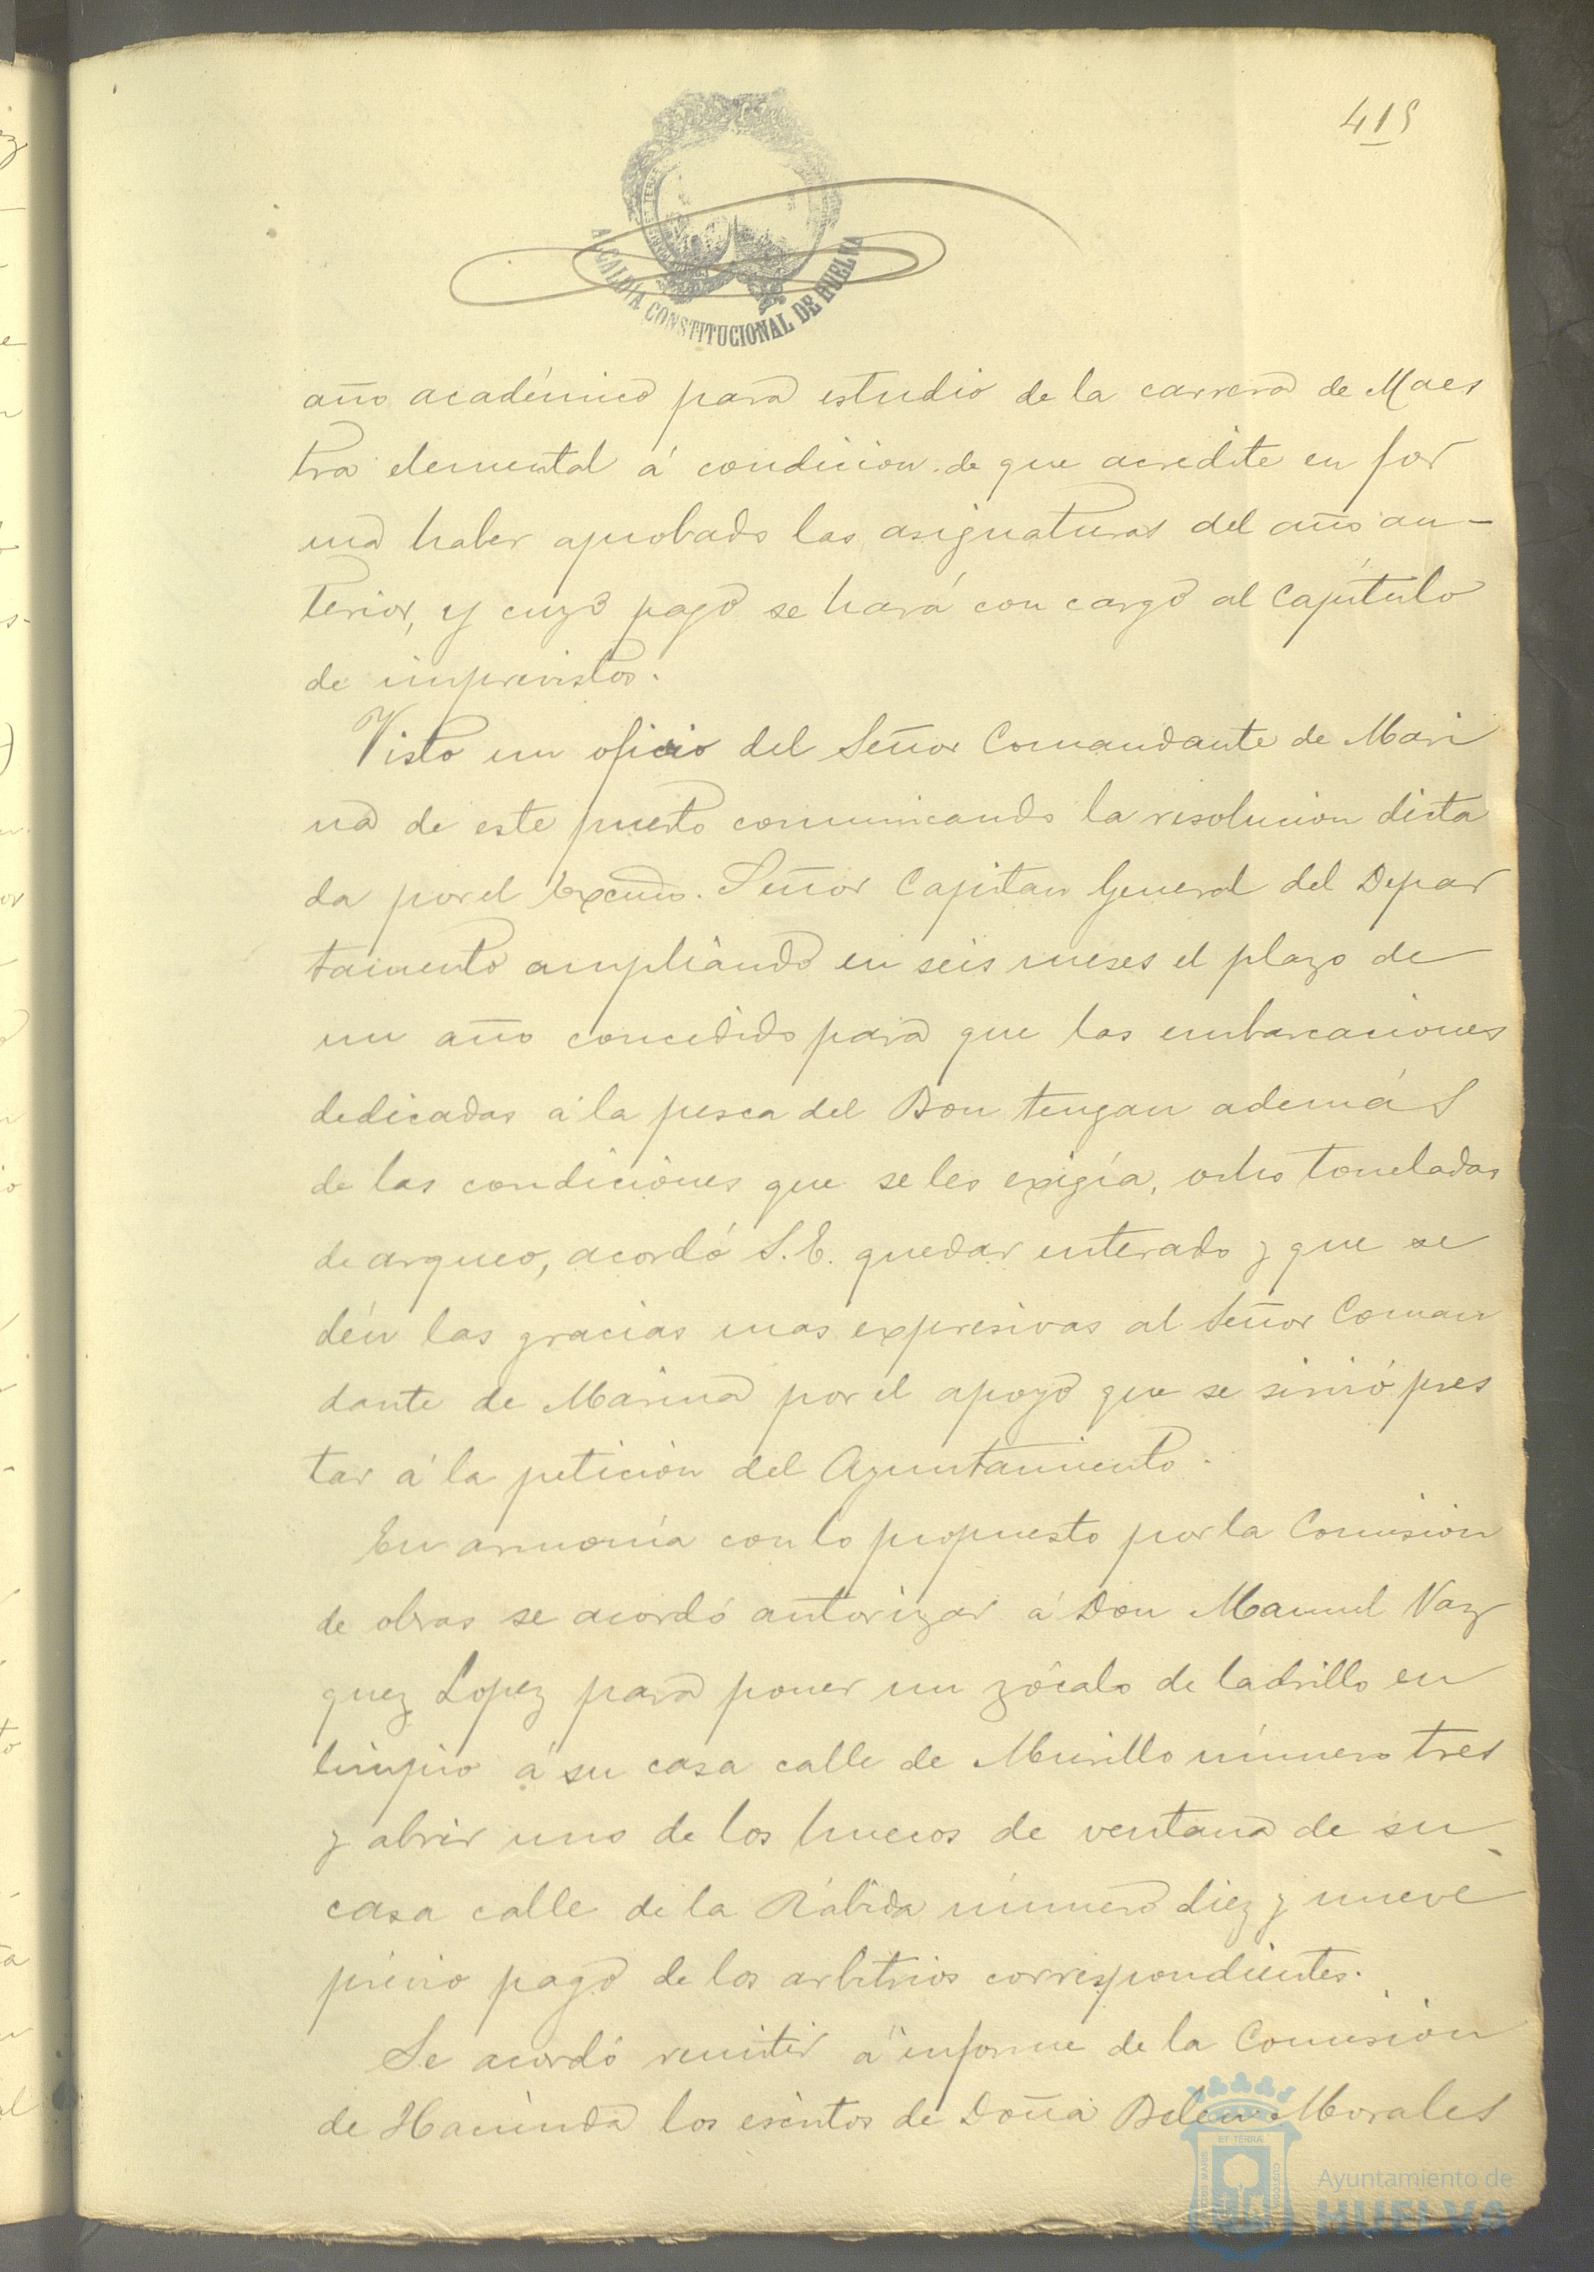 415
ALCALDÍA CONSTITUCIONAL DE HUELVA
año académico para estudio de la carrera de Maes
tra elemental á condicion de que acredite en for
ma haber aprobado las asignaturas del año an-
terior, y cuyo pago se hará con cargo al Capítulo
de imprevistos.
Visto un oficio del Señor Comandante de Mari
na de este puerto comunicando la resolucion dicta
da por el Excmo. Señor Capitan General del Depar
tamento ampliando en seis meses el plazo de
un año concedido para que las embarcaciones
dedicadas á la pesca del Bou tengan además
de las condiciones que se les exigía, ocho toneladas
de arqueo, acordó S. E. quedar enterado y que se
dén las gracias mas expresivas al Señor Coman
dante de Marina por el apoyo que se sirvió pres
tar á la petición del Ayuntamiento.
En armonía con lo propuesto por la Comision
de obras se acordó autorizar á Don Manuel Vaz
quez Lopez para poner un zócalo de ladrillo en
limpio á su casa calle de Murillo número tres
y abrir uno de los huecos de ventana de su
casa calle de la Rábida número diez y nueve
prévio pago de los arbitrios correspondientes.
Se acordó remitir á informe de la Comisión
de Hacienda los escritos de Doña Belen Morales
Ayuntamiento de
HUELVA